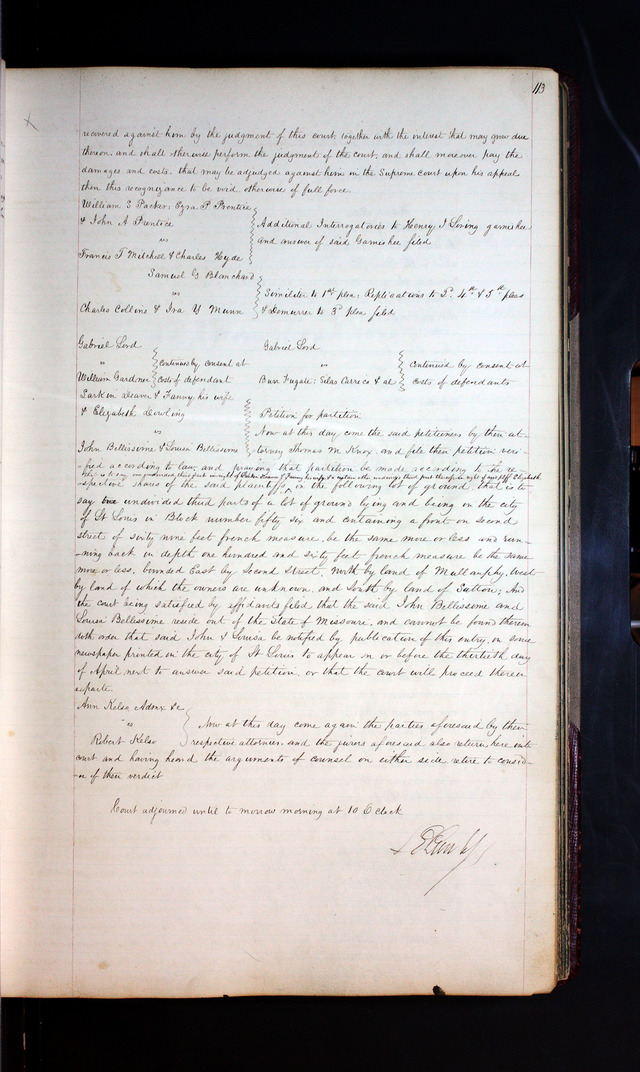 113
recovered against him by the judgment of this court, together with the interest that may grow due
thereon, and shall otherwise perform the judgment of the court, and shall moreover pay the
damages and costs, that may be adjudged against him in the Supreme Court upon his appeal
then this recognizance to be void otherwise of full force.
William S Packer, Ezra P Prentice
& John A Prentice
vs
Francis T Mitchell & Charles Hyde
Additional Interrogatories to Henry J Loring garnishee
and answer of said Garnishee filed
Samuel G Blanchard
vs
Charles Collins & Ira Y Munn
Similiter to 1st plea, Replications to 2d, 4th & 5th pleas
& Demurrer to 3d plea filed
Gabriel Lord
vs
William Gardner
continued by consent at
costs of defendant
Gabriel Lord
vs
Burr Fugate, Silas Carrico & al
continued by consent at
costs of defendants
Larkin Deaver & Fanny his wife
& Elizabeth Dowling
vs
John Bellissime & Louisa Bellissime
Petition for partition
Now at this day, come the said petitioners by their at-
torney Thomas M Knox, and file their petition veri-
-fied according to law, and praying that partition be made according to the re-
-spective shares of the said plaintiffs in the following lot of ground that is to
say two undivided third parts of a lot of ground lying and being in the city
of St Louis in Block number fifty six and containing a front on second
street of sixty nine feet french measure, be the same more or less and run-
-ning back in depth one hundred and sixty feet french measure be the same
more or less, bounded East by Second Street, North by land of Mullanphy, West
by land of which the owners are unknown, and South by land of Sutton; And
the court being satisfied by affidavits filed that the said John Bellissime and
Louisa Bellissime reside out of the State of Missouri, and cannot be found therein
doth order that said John & Louisa be notified by publication of this entry, in some
newspaper printed in the city of St Louis to appear on or before the thirtieth day
of April next to answer said petition, or that the court will proceed therein
exparte.
Ann Kelso, Admx &c
vs
Robert Kelso
Now at this day come again the parties aforesaid by their
respective attornies, and the jurors aforesaid also return here into
court and having heard the arguments of counsel on either side retire to consid-
-er of their verdict
Court adjourned until to morrow morning at 10 O'clock